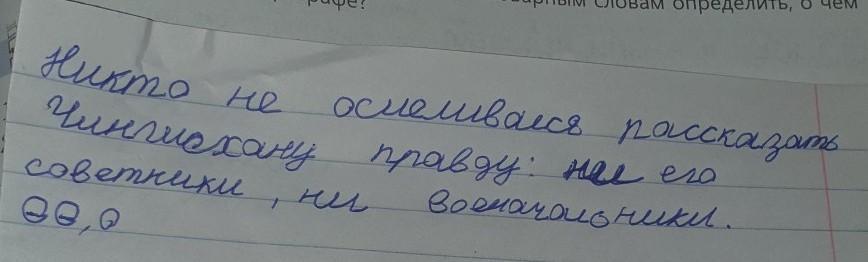 рафе?
арным словам определить, о чем
Никто не осмеливался рассказать
Чингисхану правду: ни его
советники, ни военачальники.